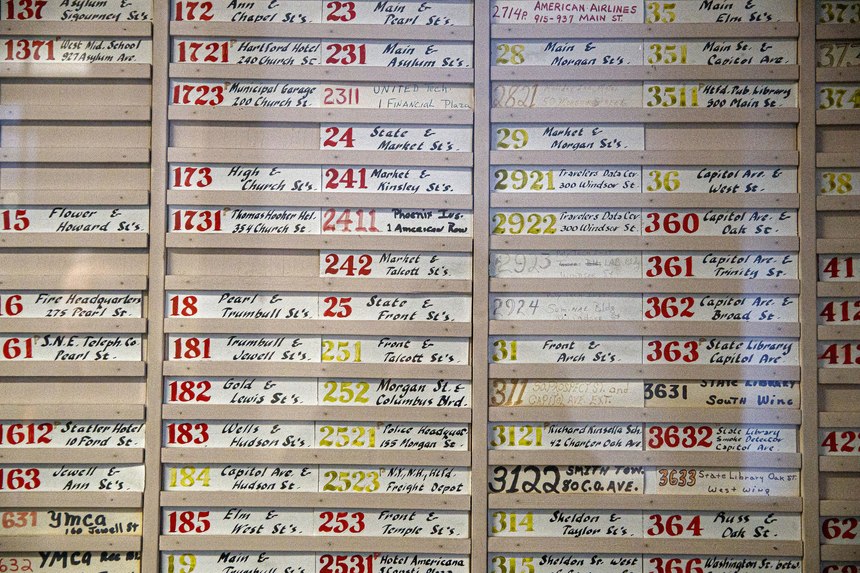 137 Asylum &
Sigourney St's
1371 West Mid. School
927 Asylum Ave.
15 Flower &
Howard St's.
16 Fire Headquarters
275 Pearl St.
161 S.N.E. Teleph. Co
Pearl St.
1612 Statler Hotel
10 Ford St.
163 Jewell &
Ann St's.
631 YMCA
160 Jewell St
632 YMCA
172 Ann &
Chapel St's.
1721 P Hartford Hotel
240 Church St.
1723 P Municipal Garage
200 Church St.
173 High &
Church St's.
1731 P Thomas Hooker Hel.
354 Church St.
18 Pearl &
Trumbull St's.
181 Trumbull &
Jewell St's.
182 Gold &
Lewis St's.
183 Wells &
Hudson St's.
184 Capitol Ave. &
Hudson St.
185 Elm &
West St's.
19 Main &
Trumbull St's.
23 Main &
Pearl St's.
231 Main &
Asylum St's.
2311 UNITED Tech
1 Financial Plaza
24 State &
Market St's.
241 Market &
Kinsley St's.
2411 Phoenix Ins.
1 American Row
242 Market &
Talcott St's.
25 State &
Front St's.
251 Front &
Talcott St's.
252 Morgan St. &
Columbus Blvd.
2521 P Police Headquat.
155 Morgan St.
2523 P N.Y., N.H., Htfd.
Freight Depot
253 Front &
Temple St's.
2531 P Hotel Americana
2714P. AMERICAN AIRLINES
915-937 MAIN ST.
28 Main &
Morgan St's.
2821
29 Market &
Morgan St's.
2921 Travelers Data Ctr.
300 Windsor St.
2922 Travelers Data Ctr.
300 Windsor St.
2923
2924
31 Front &
Arch St's.
311 50 PROSPECT ST. and
CAPITOL AVE. EXT.
3121 P Richard Kinsella Sch.
42 Charter Oak Ave.
3122 SMITH TOW.
80 C.O. AVE.
314 Sheldon &
Taylor St's.
315 Sheldon St. west
35 Main &
Elm St's.
351 Main St. &
Capitol Ave.
3511 P Htfd. Pub. Library
500 Main St.
36 Capitol Ave &
West St.
360 Capitol Ave. &
Oak St.
361 Capitol Ave. &
Trinity St.
362 Capitol Ave. &
Broad St.
363 P State Library
Capitol Ave
3631 STATE LIBRARY
SOUTH WING
3632 State Library
Smoke Detector
Capitol Ave.
3633 State Library Oak ST.
West wing
364 Russ &
Oak St.
366 Washington St. betw.
373
374
38
41
412
413
42
62